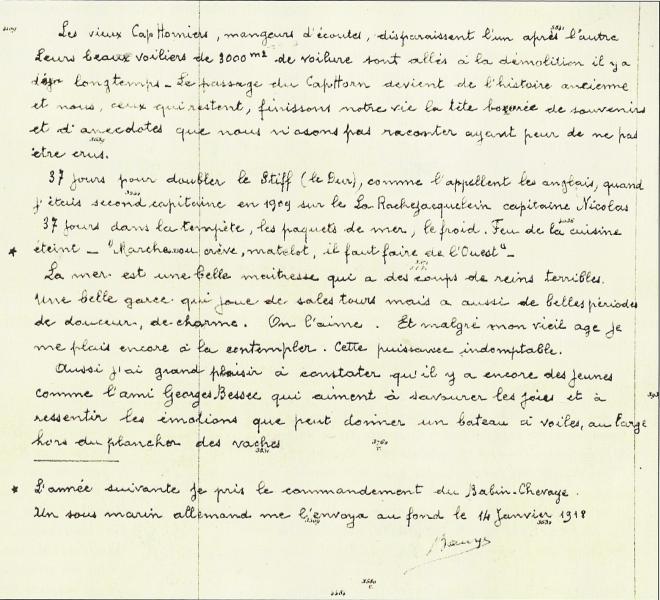 Les vieux Cap Horniers, mangeurs d'écoutes, disparaissent l'un après l'autre
Leurs beaux voiliers de 3000 m² de voilure sont allés à la démolition il y a
déjà longtemps _ Le passage du Cap Horn devient de l'histoire ancienne
et nous, ceux qui restent, finissons notre vie la tête bourrée de souvenirs
et d'anecdotes que nous n'osons pas raconter ayant peur de ne pas
être crus.
37 jours pour doubler le Stiff (le Dur), comme l'appellent les anglais, quand
j'étais second capitaine en 1909 sur le La Rochejacquelein capitaine Nicolas
37 jours dans la tempête, les paquets de mer, le froid. Feu de la cuisine
* éteint _ "Marche ou crève, matelot, il faut faire de l'Ouest" _
La mer est une belle maitresse qui a des coups de reins terribles.
Une belle garce qui joue de sales tours mais a aussi de belles périodes
de douceur, de charme. On l'aime. Et malgré mon vieil age je
me plais encore à la contempler. Cette puissance indomptable.
Aussi j'ai grand plaisir à constater qu'il y a encore des jeunes
comme l'ami Georges Bessec qui aiment à savourer les joies et à
ressentir les émotions que peut donner un bateau à voiles, au large
hors du plancher des vaches
* L'année suivante je pris le commandement du Babin-Chevaye.
Un sous marin allemand me l'envoya au fond le 14 Janvier 1918